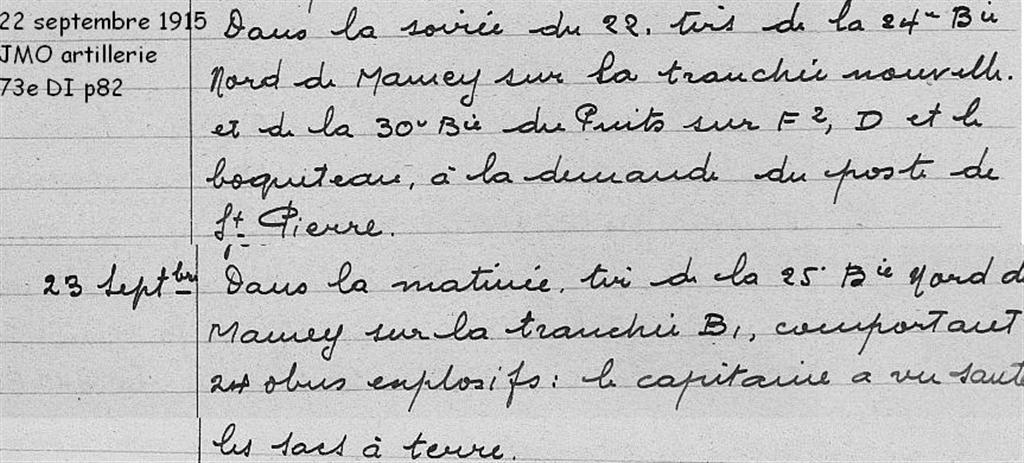 22 septembre 1915
JMO artillerie
73e DI p82
Dans la soirée du 22, tirs de la 24e Bie
Nord de Mamey sur la tranchée nouvelle.
et de la 30e Bie du Puits sur F2, D et le
boqueteau, à la demande du poste de
St Pierre.
23 Septbre Dans la matinée, tir de la 25e Bie Nord d
Mamey sur la tranchée B1, comportant
24 obus explosifs : le capitaine a vu saute
les sacs à terre.